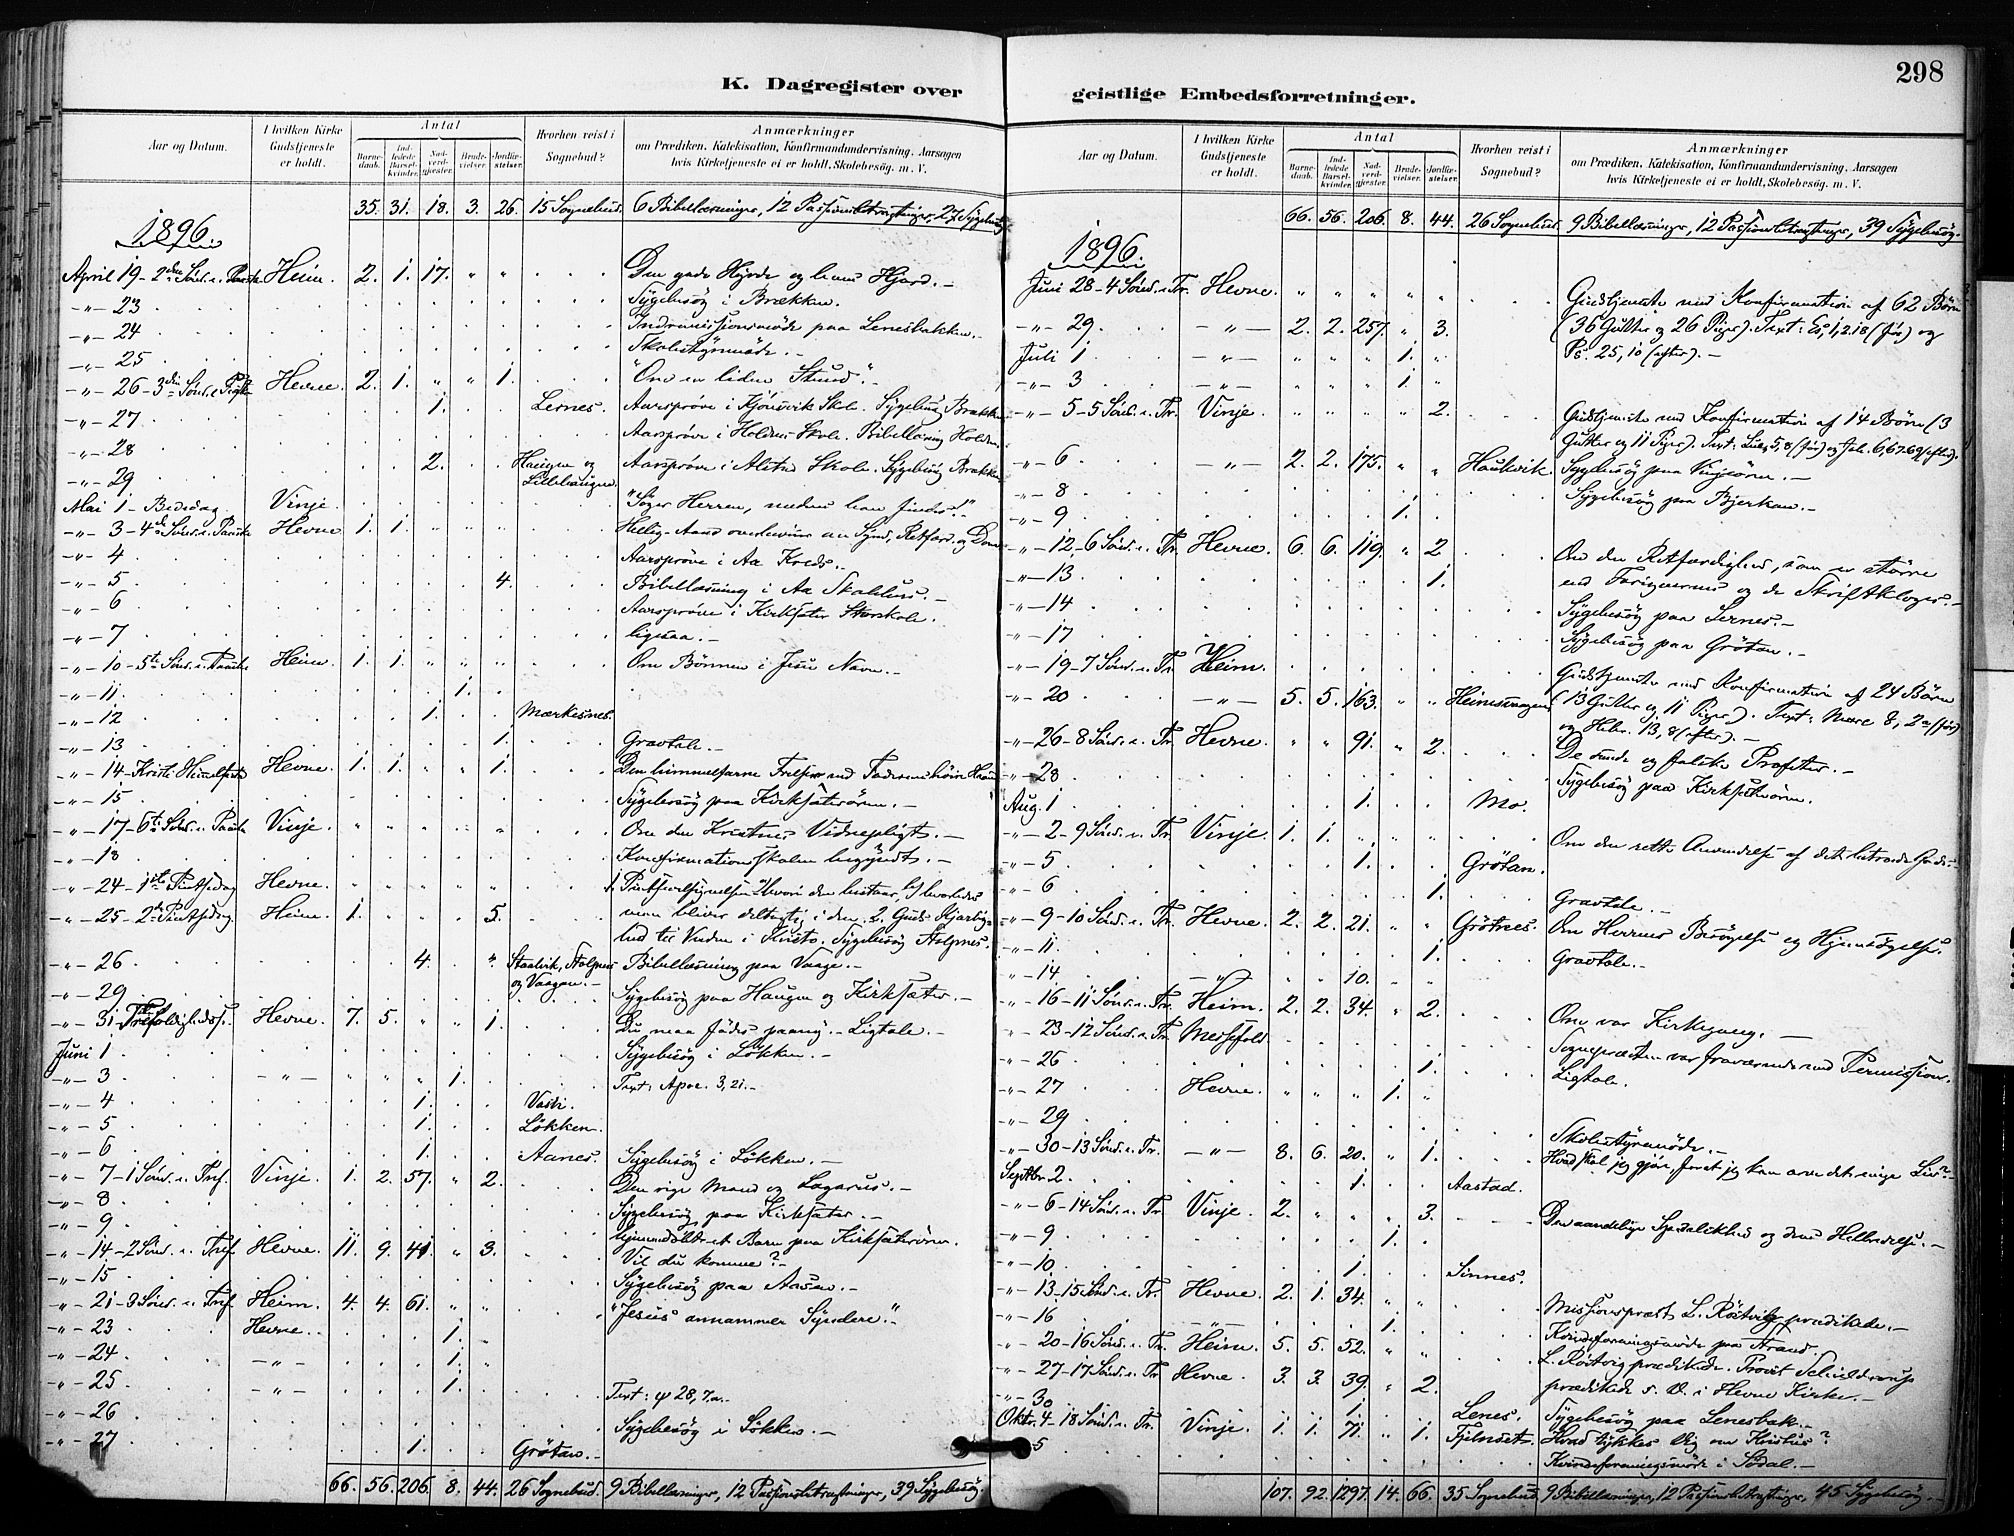 298
K. Dagregister over
Aar og Datum.
I hvilken Kirke Gudstjeneste er holdt.
Antal
Barnedaab.
Indledede Barselkvinder.
Nadverdgjester.
Brudevielser.
Jordfæstelser.
Hvorhen reist i Sognebud?
Anmærkninger
om Prædiken, Katekisation, Konfirmandundervisning. Aarsagen
hvis Kirketjeneste ei er holdt. Skolebesøg. m. V.
35. 31. 18. 3. 26. 15 Sognebud. 6 Bibellæsninger, 12 Passionsbetragtninger, 27 Sygebesøg
1896.
April 19 - 2den Sønd. e. Paaske Heim. 2. 1. 17. " " Den gode Hyrde og hans Hjord. -
-"- 23 Sygebesøg i Brækken.
-"- 24 Indremissionsmøde paa Lenesbakken.
-"- 25 Skolestyremøde. -
-"- 26 - 3die Sønd. e. Paaske Hevne. 2. 1. " " 1. "Om en liden Stund". -
-"- 27 1. Lernes. Aarsprøve i Kjønsvik Skole. Sygebesøg Brækken
-"- 28 Aarsprøve i Holden Skole. Bibellæsning Holden.
-"- 29 2. Haugen og Lillehaugen. Aarsprøve i Skole. Sygebesøg Brækken
Mai 1 - Bededag Vinje. "Søger Herren, medens han findes!"
-"- 3 - 4de Sønd. e. Paaske Hevne 1. 1. " " " Hellig-Aand overbeviser om Synd, Retfærd. og Dom
-"- 4 Aarsprøve i Aa Kreds. -
-"- 5 4. Bibellæsning i Aa Skolehus. -
-"- 6 Aarsprøve i Kirksæter Storskole.
-"- 7 ligesaa. -
-"- 10 - 5te Sønd. e. Paaske Heim 1. 1. " " " Om Bønnen i Jesu Navn. -
-"- 11. 1.
-"- 12 1. Mærkesnes.
-"- 13 1. Gravtale. -
-"- 14 - Kristi Himmelfartsd. Hevne 1. 1. " " 1. Den himmelfarne Frelser ved Faderens høire Haand
-"- 15 Sygebesøg paa Kirksæterøren. -
-"- 17 - 6te Sønd. e. Paaske Vinje. " " " " " Om den Kristnes Vidnepligt. -
-"- 18 Konfirmationsskolen begyndt. -
-"- 24 - 1ste Pintsedag Hevne. " " " " " 1. Pintsevelsignelsen a/ hvori den bestaar, b/ hvorledes
-"- 25 - 2den Pintsedag Heim. 1. " " " 5. man bliver delagtig i den. 2. Guds Kjærlighed til Verden i Kristo. Sygebesøg Stolpnes.
-"- 26 4. " Staalvik, Stolpnes og Vaagan. - Bibellæsning paa Vaage. -
-"- 29 Sygebesøg paa Haugen og Kirksæter. -
-"- 31 - Trefoldighedss. Hevne. 7. 5. " " 1. Du maa fødes paany. - Ligtale. -
Juni 1 Sygebesøg i Løkken. -
-"- 3 -"- " " " 1. Text: Apoc. 3, 21. -
-"- 4 1. Vasli.
-"- 5 1. Løkken.
-"- 6 1. Aanes. Sygebesøg i Løkken. -
-"- 7 - 1 Sønd. e. Tref. Vinje. 1. 2. 57. " 2. Den rige Mand og Lazarus. -
-"- 8 Sygebesøg paa Kirksæter. -
-"- 9 hjemmedøbt et Barn paa Kirksæterøren.
-"- 14 - 2 Sønd. e. Tref. Hevne. 11. 9. 41. " 3. Vil du komme? -
-"- 15 Sygebesøg paa Aasan. -
-"- 21 - 3 Sønd. e. Tref. Heim. 4. 4. 61. " " "Jesus annammer Syndere." -
-"- 23 Hevne. 1.
-"- 24 -"- 1. "
-"- 25 -"- 1. Text: ψ 28, 7a.
-"- 26 Sygebesøg i Løkken. -
-"- 27 1. Grøtan. -
66. 56. 206. 8. 44. 26 Sognebud. 9 Bibellæsninger, 12 Passionsbetragtninger, 39 Sygebesøg.
geistlige Embedsforretninger.
Aar og Datum.
I hvilken Kirke Gudstjeneste er holdt.
Antal
Barnedaab.
Indledede Barselkvinder.
Nadverdgjester.
Brudevielser.
Jordfæstelser.
Hvorhen reist i Sognebud?
Anmærkninger
om Prædiken, Katekisation, Konfirmandundervisning. Aarsagen
hvis Kirketjeneste ei er holdt. Skolebesøg. m. V.
66. 56. 206. 8. 44. 26 Sognebud. 9 Bibellæsninger, 12 Passionsbetragtninger, 39 Sygebesøg.
1896.
Juni 28 - 4 Sønd. e. Tr. Hevne. " " " " " Gudstjeneste med Konfirmation af 62 Børn
-"- 29. -"- 2. 2. 257. " 3. (36 Gutter og 26 Piger). Text: Es. 1, 2.18 (før) og
Juli 1 -"- " " " 1. " Ps. 25, 10 (efter). -
-"- 3 -"- " " " 1. "
-"- 5 - 5 Sønd. e. Tr. Vinje. " " " " 2. Gudstjeneste med Konfirmation af 14 Børn (3
Gutter og 11 Piger). Text: Luc. 5, 8 (før) og Joh. 6, 67-69 (efter).
-"- 6 -"- 2. 2. 175. " " Haukvik. Sygebesøg paa Vinjeøren. -
-"- 8 Sygebesøg paa Bjerkan. -
-"- 9 1.
-"- 12. - 6 Sønd. e. Tr. Hevne. 6. 6. 119. " 2 Om den Retfærdighed, som er større
-"- 13. 1. end Farisæernes og de Skriftkloges. -
-"- 14 Sygebesøg paa Lernes. -
-"- 17 Sygebesøg paa Grøtan. -
-"- 19 - 7 Sønd. e. Tr. Heim. Gudstjeneste med Konfirmation af 24 Børn
-"- 20 -"- 5. 5. 163. " " Heimsvaagen (13 Gutter og 11 Piger). Text: Marc. 8, 2a (før)
og Hebr. 13, 8 (efter). -
-"- 26 - 8 Sønd. e. Tr. Hevne. " " 91. " 2. De sande og falske Profeter. -
-"- 28 Sygebesøg paa Kirksæterøren.
Aug. 1 1. Mo.
-"- 2 - 9 Sønd. e. Tr. Vinje. 1. 1. " " " Om den rette Anvendelse af det betroede Gods. -
-"- 5 1. Grøtan.
-"- 6 1. Gravtale. -
-"- 9 - 10 Sønd. e. Tr. Hevne. 2. 2. 21. " " Grøtnes. Om Herrens Besøgelse og Hjemsøgelse.
-"- 11. 1. Gravtale. -
-"- 14 -"- 10. " "
-"- 16 - 11 Sønd. e. Tr. Heim. 2. 2. 34. " 2. Om vor Kirkegang. -
-"- 23 - 12 Sønd. e. Tr. Messefald. Sognepræsten var fraværende med Permission.
-"- 26 1. Ligtale.
-"- 27 Hevne. " " " 1. "
-"- 29 Skolestyremøde. -
-"- 30 - 13 Sønd. e. Tr. -"- 8. 6. 20. " 1. Hvad skal jeg gjøre, forat jeg kan arve det evige Liv? -
Septbr. 2. 1. Aastad.
-"- 6 - 14 Sønd. e. Tr. Vinje. 2. " " " 3. Den aandelige Spedalskhed og dens Helbredelse. -
-"- 9 1.
-"- 10 1. Sinnes.
-"- 13 - 15 Sønd. e. Tr. Hevne. 2. 1. 34. " " Missionsprest L. Røstvig prædikede. -
-"- 16 -"- 1. Kvindeforeningsmøde paa Strand.
-"- 20 - 16 Sønd. e. Tr. Heim. 5. 5. 52. " " L. Røstvig prædikede. Provst Schielderup
-"- 27 - 17 Sønd. e. Tr. Hevne. 3. 3. 39. " 2. prædikede s. D. i Hevne Kirke. -
-"- 30 1. Lenes. Sygebesøg paa Lenesbak. -
Oktr. 4 - 18 Sønd. e. Tr. Vinje. 1. 1. 71. " 1. Fjelnset. Hvad tykkes Dig om Kristus?
5 Kvindeforeningsmøde i Sødal. -
107. 92. 1297. 14. 66. 35 Sognebud. 9 Bibellæsninger, 12 Passionsbetragtninger, 45 Sygebesøg. -